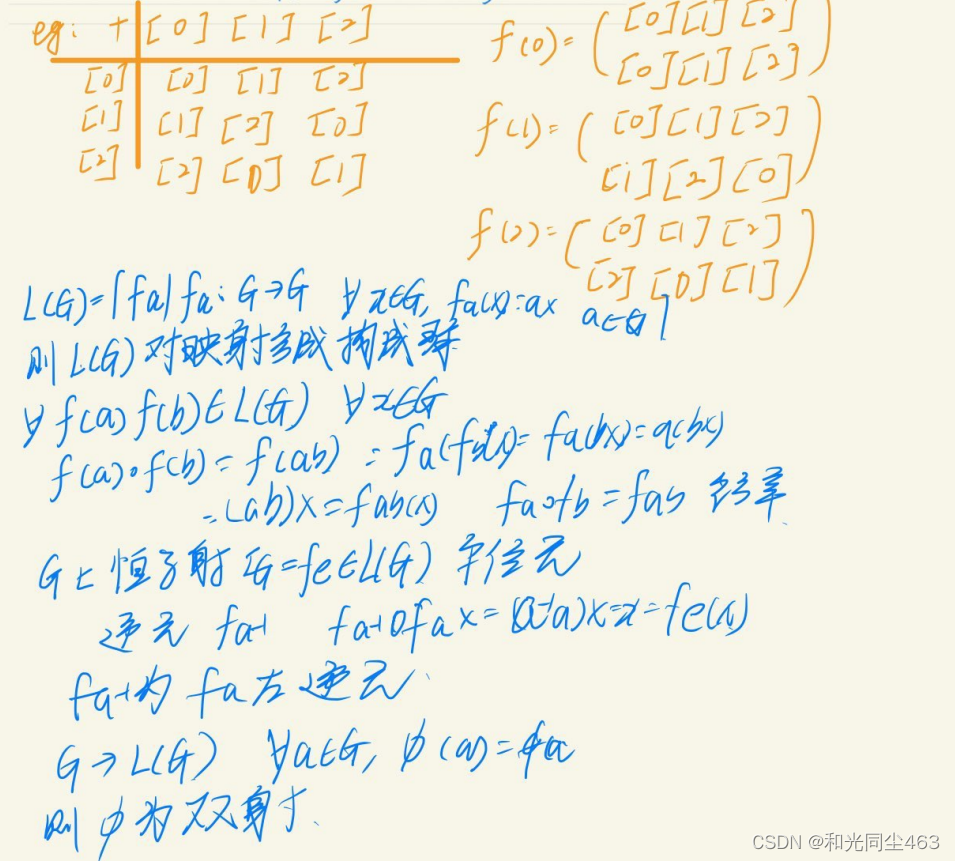 eg: + [0] [1] [2]
[0] [0] [1] [2]
[1] [1] [2] [0]
[2] [2] [0] [1]
f(0)= ([0][1][2]
[0][1][2])
f(1)= ([0][1][2]
[1][2][0])
f(2)= ([0][1][2]
[2][0][1])
L(G)={fa|fa: G→G ∀x∈G, fa(x)=ax a∈G}
则 L(G) 对映射合成构成群
∀ f(a) f(b)∈L(G) ∀x∈G
f(a)∘f(b)=f(ab) = fa(fb(x))= fa(bx)=a(bx)
=(ab)x=fab(x) fa∘fb=fab
G上 恒等射 IG=fe∈L(G) 单位元
逆元 fa-1 fa-1∘fa x=(a-1a)x=x=fe(x)
fa-1为 fa左逆元.
G→L(G) ∀a∈G, φ(a)=fa
则 φ为双射.
CSDN @和光同尘463